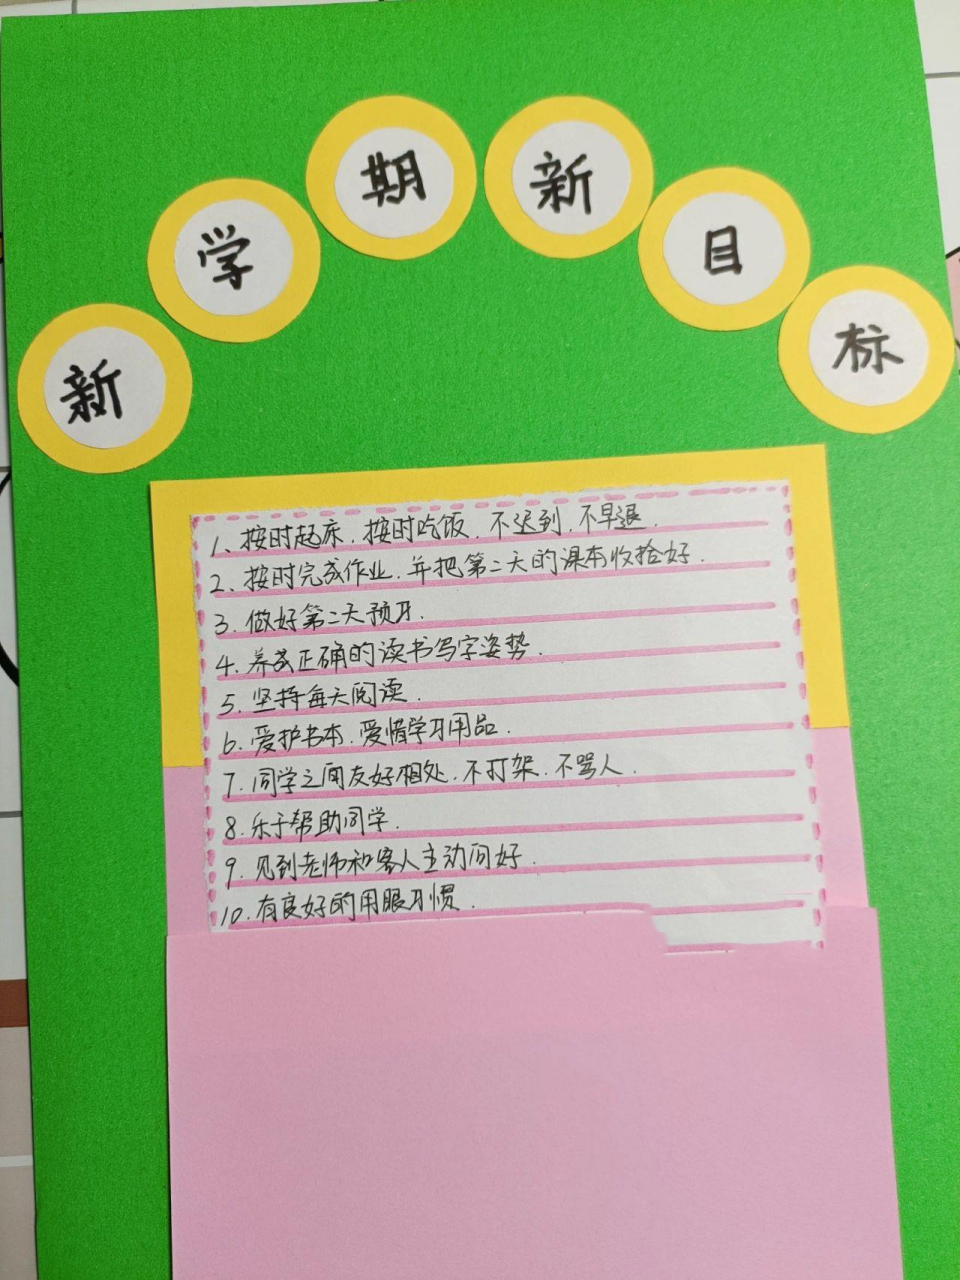 新学期新目标
1、按时起床.按时吃饭.不迟到.不早退.
2、按时完成作业.并把第二天的课本收拾好.
3.做好第二天预习.
4.养成正确的读书写字姿势.
5.坚持每天阅读.
6.爱护书本.爱惜学习用品.
7.同学之间友好相处.不打架.不骂人.
8.乐于帮助同学.
9.见到老师和客人主动问好.
10.有良好的用眼习惯.